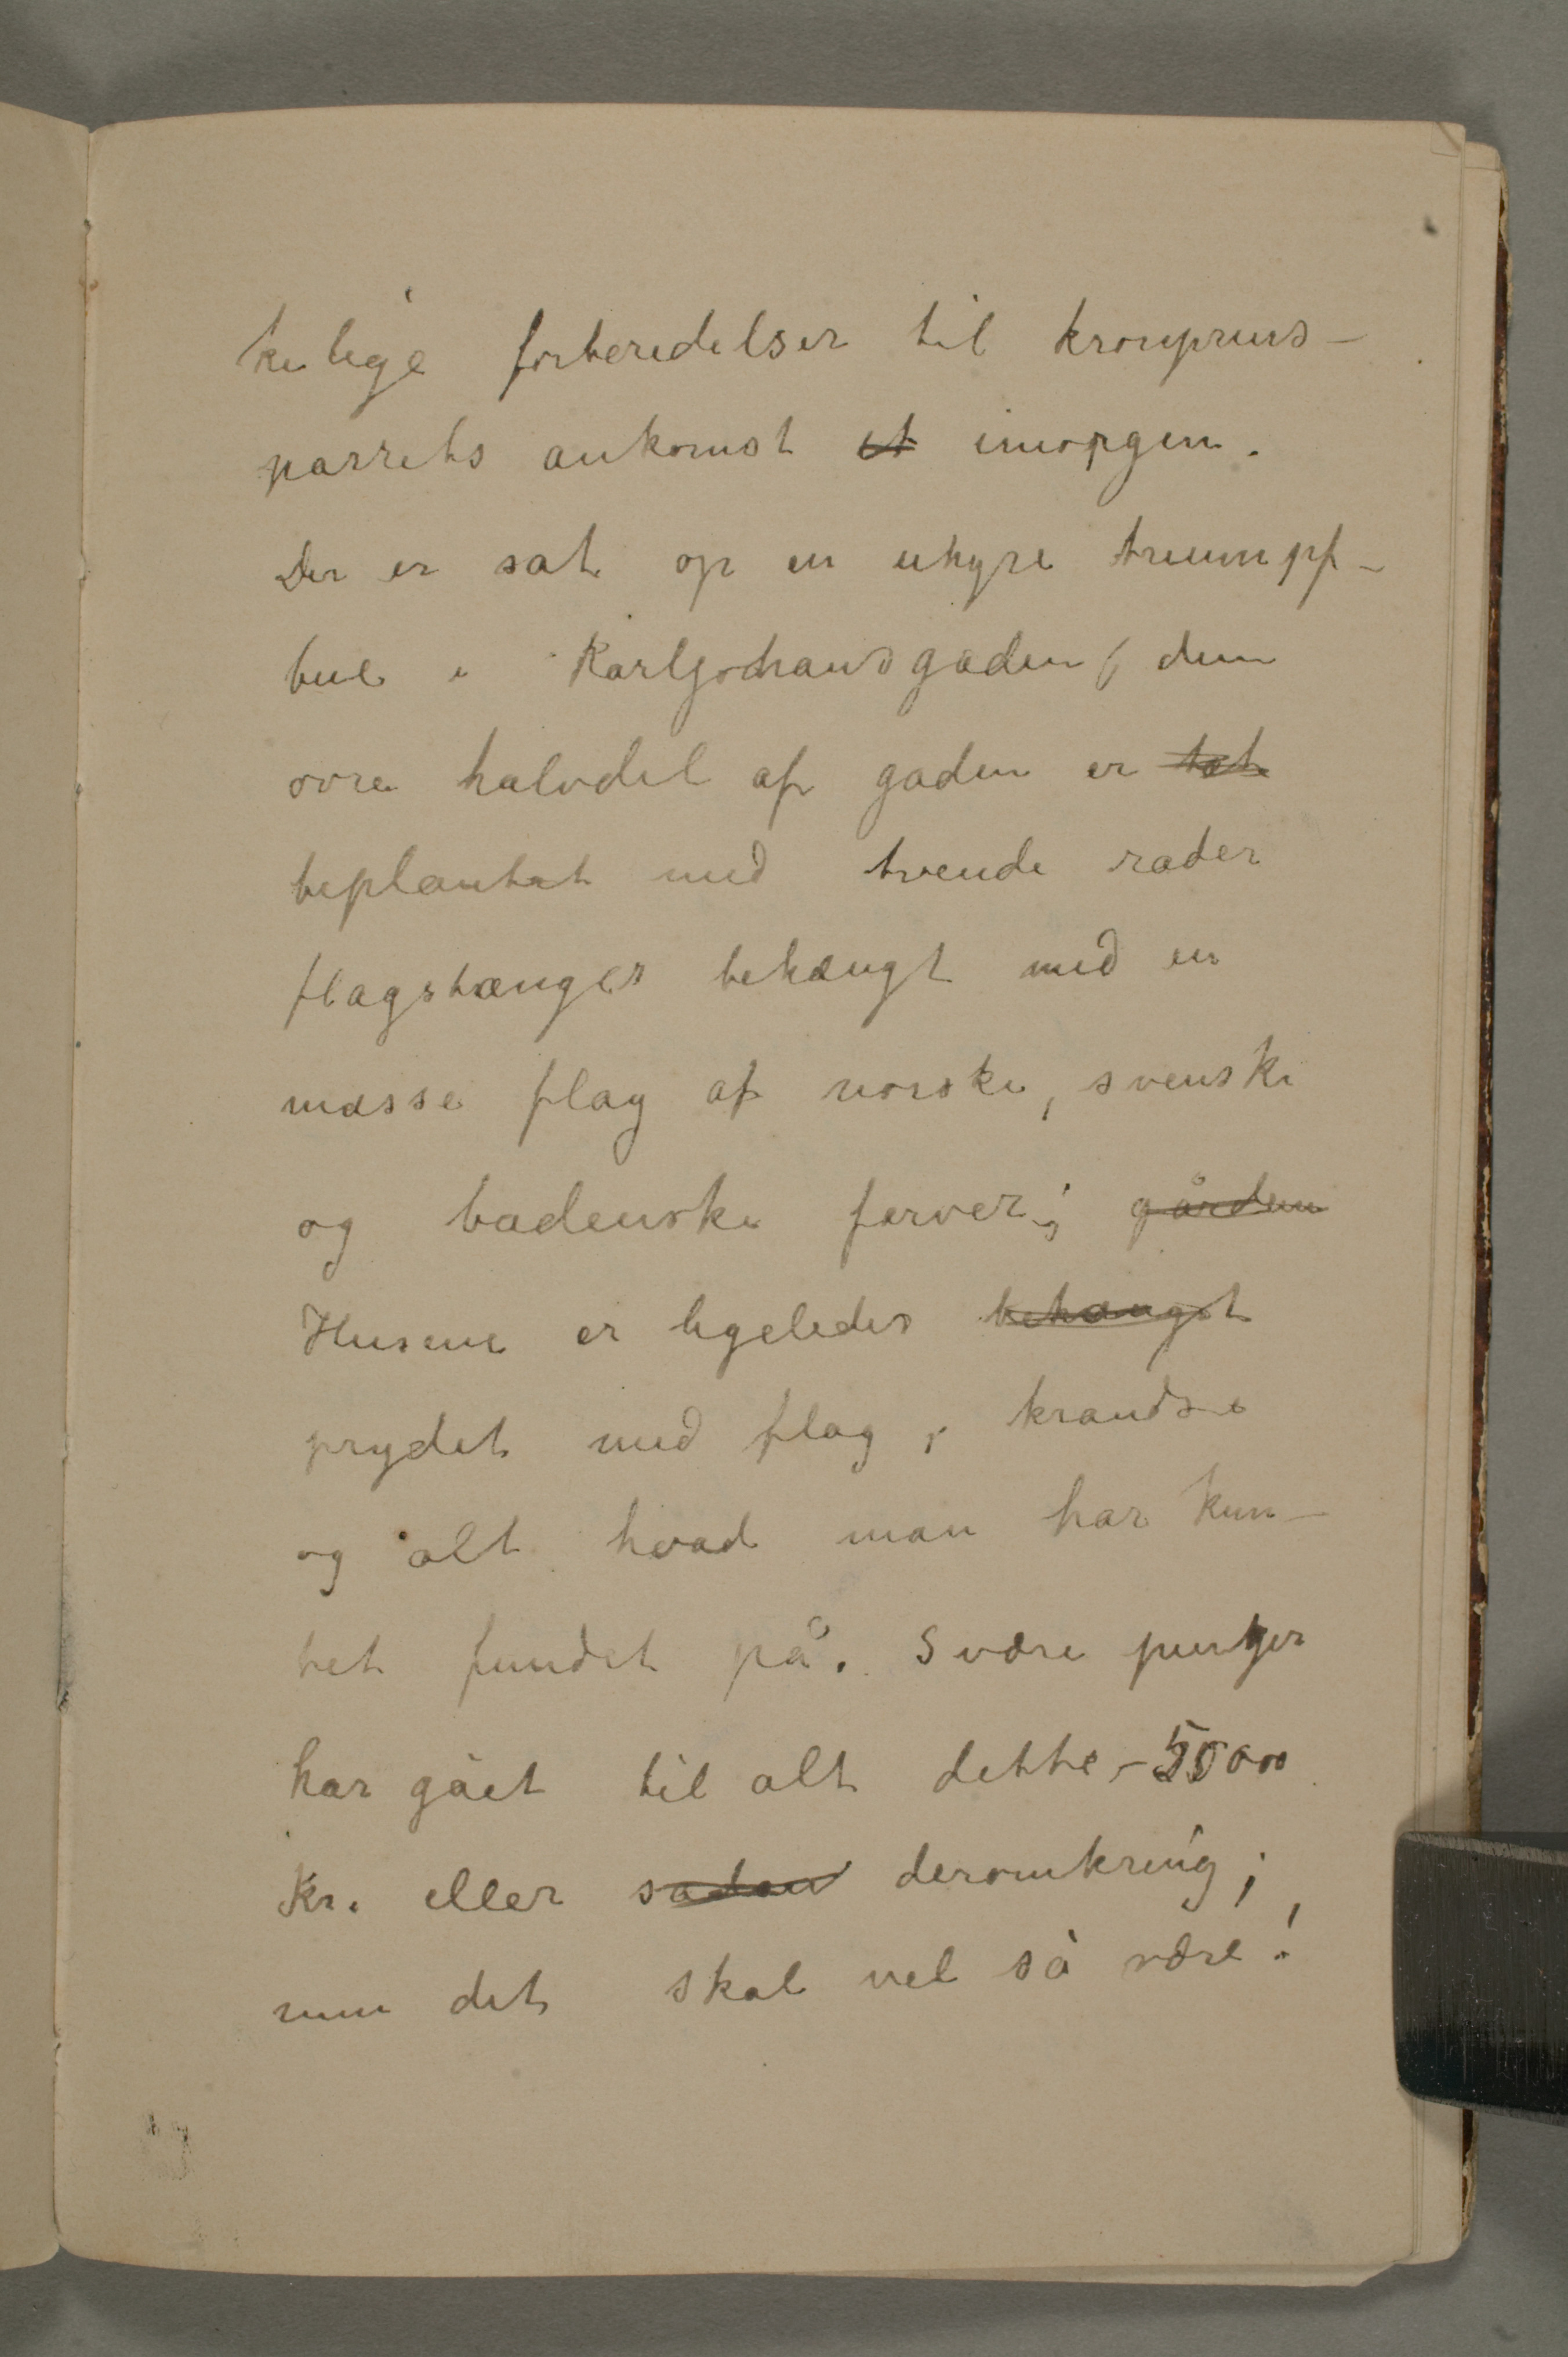 kelige forberedelser til kronprins-
parrets ankomst et imorgen.
Der er sat op en uhyre triumpf-
bue i Karljohansgaden, den
øvre halvdel af gaden er tæt
beplantet med tvende rader
flagstænger behængt med en
masse flag af norske, svenske
og badenske farver; gårdene
Husene er ligeledes behængt
prydet med flag, krandse
og alt hvad man har kun-
net fundet på. Svære penger
har gået til alt dette, – 55000
Kr. eller sådan deromkring;
men det skal vel så være!